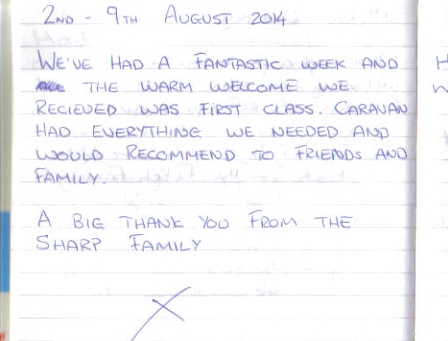 2ND - 9TH AUGUST 2014
WE'VE HAD A FANTASTIC WEEK AND
THE WARM WELCOME WE
RECIEVED WAS FIRST CLASS. CARAVAN
HAD EVERYTHING WE NEEDED AND
WOULD RECOMMEND TO FRIENDS AND
FAMILY.
A BIG THANK YOU FROM THE
SHARP FAMILY
X